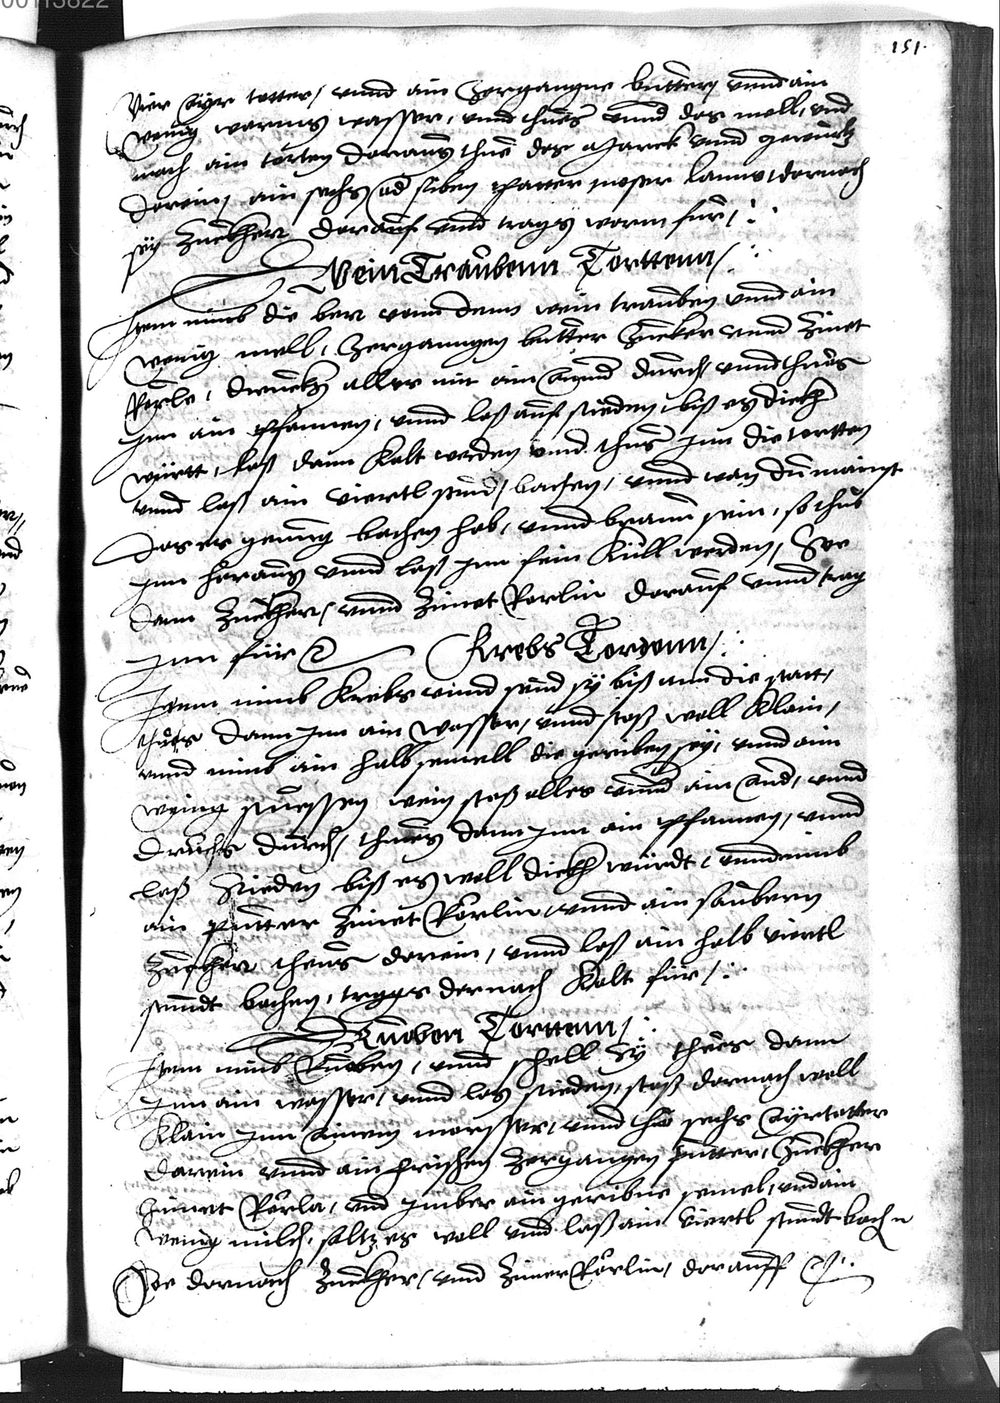 00113822
151.
Vier Ayr totter, vnnd ain Zergangne butter, vnnd ain
wenig warms wasser, vnd thues vnnd das mell, vnd
mach ain torten daraus thue das March vnnd gewürtz
darein, ain sechs od siben pfatter moser lanns, darnach
sey Zuckher darauf vnd trags warm für /.
Wein Traübenn Torttenn /.
Item nimb die ber vonn denn wein trauben vnnd ain
wenig mell, Zerganngen butter Zucker vnnd Zimet
Rörle, druckhs alles mit ain annd durch, vnnd thues
jnn ain Pfannen, vnnd laß auf sieden, biß es dickh
württ, laß dann Kalt werden vnd thus jnn die tortten
vnnd laß ain viertl stund, bachen, vnnd wan du mainst
das er genug bachen hab, vnnd braun sein, so thue
jnn heraus vnnd laß jnn fein Küll werden, See
dann Zuckher, vnnd Zimet Rorlin darauf vnnd trag
jnn für Krebs Tordenn /.
Item nimb Krebs vnnd seud sy biß ann die statt,
thuets dann jnn ain wasser, vnnd stoß woll Klain,
vnnd nimb ain halb semell die geriben sey, vnnd ain
wenig suessen wein stoß alles vnnd ain and, vnnd
druckhs durch, thues dann jnn ain Pfannen, vnnd
laß Sieden biß es woll dickh würdt, vnnd nimb
ain putter Zimet Rörlin, vnnd ain saubern
Zuckher thues darein, vnnd laß ain halb viertl
stundt bachen, trags dernach Kalt für /.
Rueben Torttenn /.
Item nimb Rueben, vnnd schell Sy thues dann
jnn ain wasser, vnnd laß sieden, stoß darnach woll
Klain jnn ainem morsser, vnnd thue sechs Ayrtotter
darein vnnd ain frischen Zergangen putter, Zuckher
Zimet Rörla, vnd jmber ain geribne semel, vnd ain
wenig milch, saltz es woll vnnd laß ain viertl stundt bachn
See darnach Zuckher, vnd Zimet Rörlin, darauff